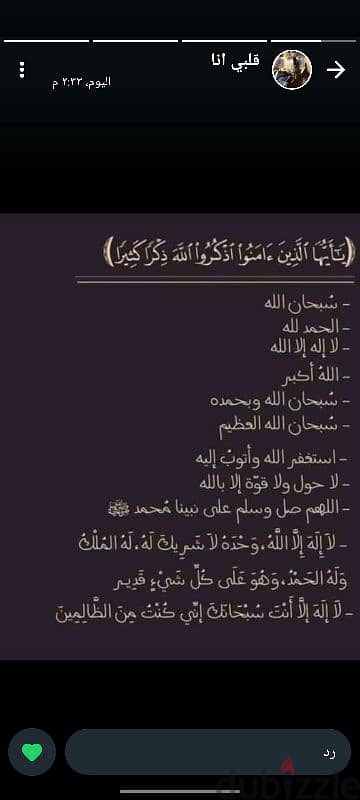 قلبي انا
اليوم، ٢:٣٣ م
﴿يَـٰٓأَيُّهَا ٱلَّذِينَ ءَامَنُوا۟ ٱذْكُرُوا۟ ٱللَّهَ ذِكْرًا كَثِيرًا﴾
- سُبحان الله
- الحمد لله
- لا إله إلا الله
- اللهُ أكبر
- سُبحان الله وبحمده
- سُبحان الله العظيم
- استغفر الله وأتوبُ إليه
- لا حول ولا قوّة إلا بالله
- اللهم صل وسلم على نبينا مُحمد ﷺ
- لَا إِلَهَ إِلَّا اللَّهُ، وَحْدَهُ لَا شَرِيكَ لَهُ، لَهُ المُلْكُ
وَلَهُ الحَمْدُ، وَهُوَ عَلَى كُلِّ شَيْءٍ قَدِيـر
- لَا إِلَهَ إِلَّا أَنْتَ سُبْحَانَكَ إِنِّي كُنْتُ مِنَ الظَّالِمِينَ
رد
dubizzle